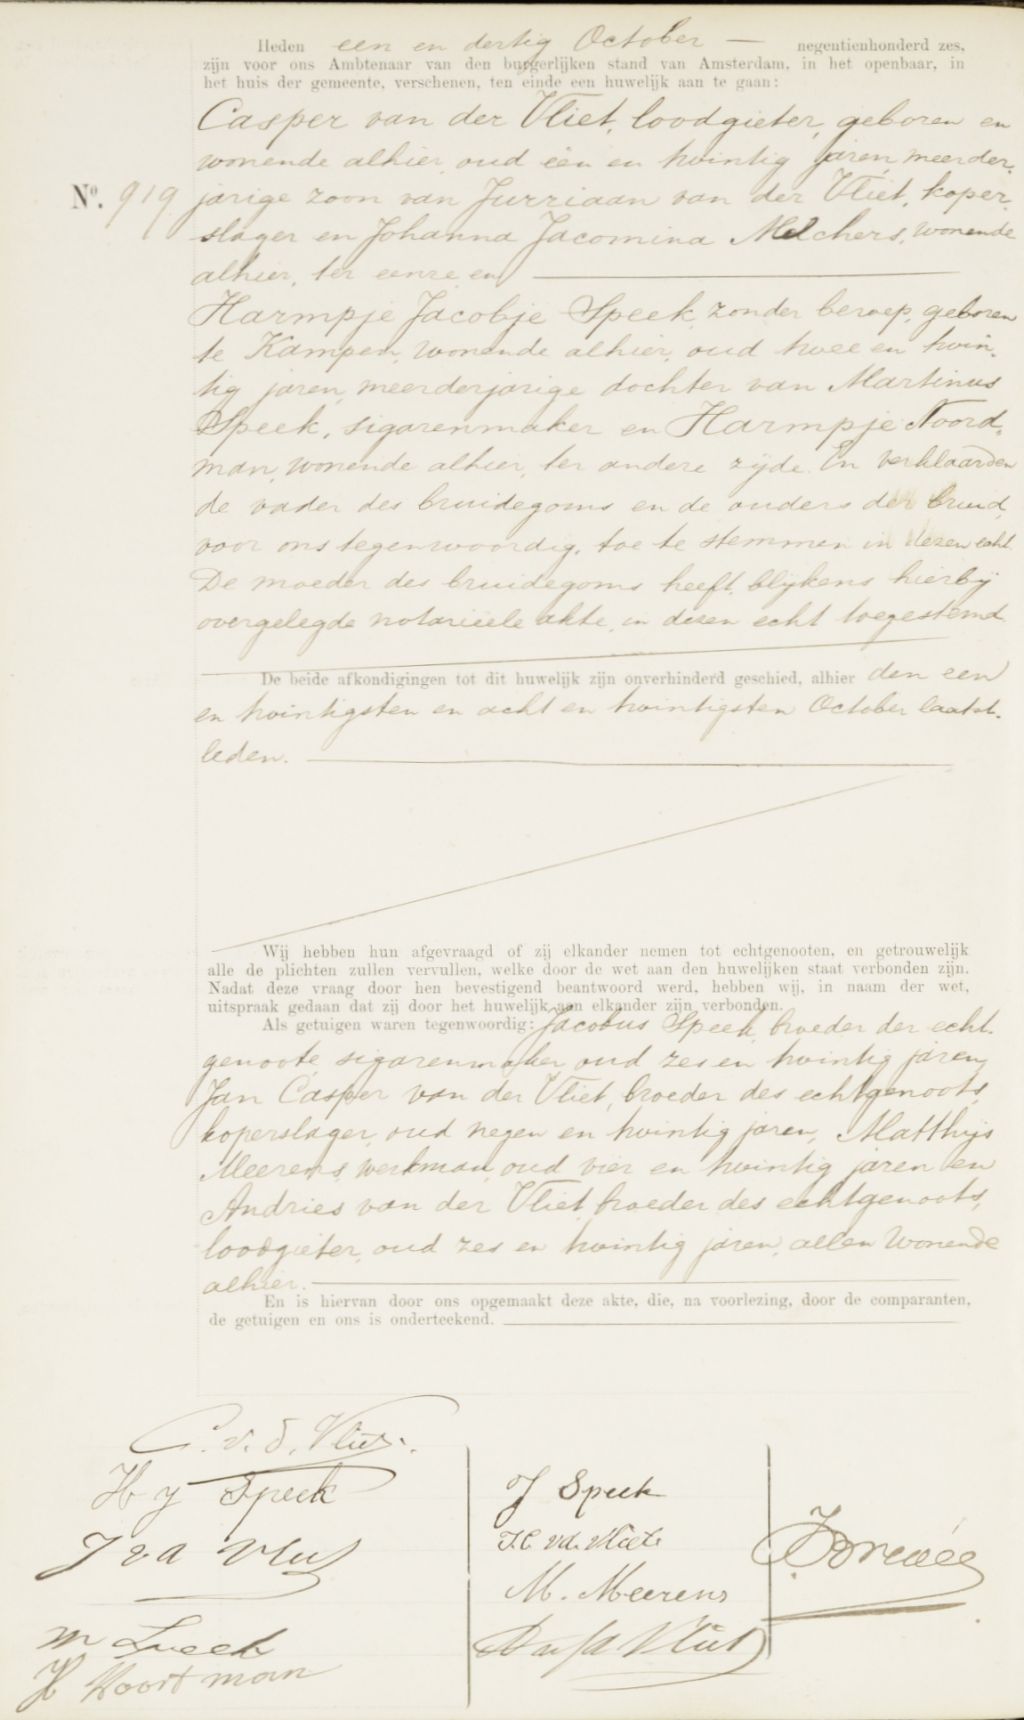 Heden een en dertig October — negentienhonderd zes,
zijn voor ons Ambtenaar van den burgerlijken stand van Amsterdam, in het openbaar, in
het huis der gemeente, verschenen, ten einde een huwelijk aan te gaan:
Casper van der Vliet, loodgieter, geboren en
wonende alhier, oud een en twintig jaren, meerder-
No. 919 jarige zoon van Jurriaan van der Vliet, koper-
slager en Johanna Jacomina Melchers, wonende
alhier, ter eenre en
Harmpje Jacobje Speek, zonder beroep, geboren
te Kampen, wonende alhier, oud twee en twin-
tig jaren, meerderjarige dochter van Martinus
Speek, sigarenmaker en Harmpje Noord-
man, wonende alhier, ter andere zijde. En verklaarden
de vader des bruidegoms en de ouders der bruid,
voor ons tegenwoordig, toe te stemmen in dezen echt.
De moeder des bruidegoms heeft, blijkens hierbij
overgelegde notarieele akte, in dezen echt toegestemd.
De beide afkondigingen tot dit huwelijk zijn onverhinderd geschied, alhier den een
en twintigsten en acht en twintigsten October laatst-
leden.
Wij hebben hun afgevraagd of zij elkander nemen tot echtgenooten, en getrouwelijk
alle de plichten zullen vervullen, welke door de wet aan den huwelijken staat verbonden zijn.
Nadat deze vraag door hen bevestigend beantwoord werd, hebben wij, in naam der wet,
uitspraak gedaan dat zij door het huwelijk aan elkander zijn verbonden.
Als getuigen waren tegenwoordig: Jacobus Speek, broeder der echt-
genoote, sigarenmaker, oud zes en twintig jaren,
Jan Casper van der Vliet, broeder des echtgenoots,
koperslager, oud negen en twintig jaren, Matthijs
Meerens, werkman, oud vier en twintig jaren en
Andries van der Vliet, broeder des echtgenoots,
loodgieter, oud zes en twintig jaren, allen wonende
alhier.
En is hiervan door ons opgemaakt deze akte, die, na voorlezing, door de comparanten,
de getuigen en ons is onderteekend.
C. v. d. Vliet.
H J Speek
J v d Vliet
M Speek
H Noortman
J Speek
J.C. vd. Vliet
M. Meerens